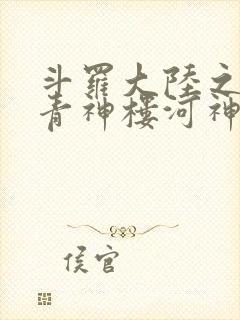 斗羅大陸之
青神樓河神
侯官